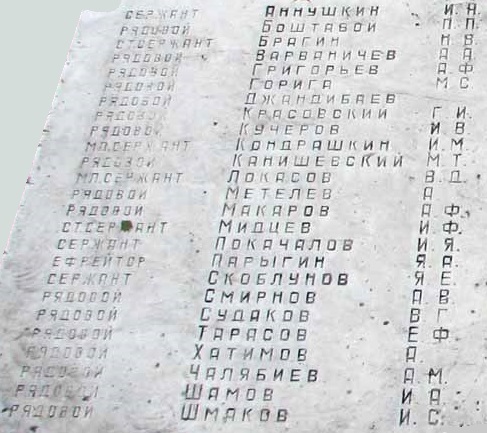 СЕРЖАНТ АННУШКИН И.Я.
РЯДОВОЙ БОШТАВОЙ П.П.
СТ.СЕРЖАНТ БРАГИН Н.В.
РЯДОВОЙ ВАРВАНИЧЕВ А.А.
РЯДОВОЙ ГРИГОРЬЕВ А.Ф.
РЯДОВОЙ ГОРИГА М.С.
РЯДОВОЙ ДЖАНДИБАЕВ
РЯДОВОЙ КРАСОВСКИЙ Г.И.
РЯДОВОЙ КУЧЕРОВ И.В.
МЛ.СЕРЖАНТ КОНДРАШКИН И.М.
РЯДОВОЙ КАНИШЕВСКИЙ М.Т.
МЛ.СЕРЖАНТ ЛОКАСОВ В.Д.
РЯДОВОЙ МЕТЕЛЕВ А
РЯДОВОЙ МАКАРОВ А.Ф.
СТ.СЕРЖАНТ МИДЦЕВ И.Ф.
СЕРЖАНТ ПОКАЧАЛОВ И.Я.
ЕФРЕЙТОР ПАРЫГИН Я.А.
СЕРЖАНТ СКОБЛУНОВ Я.Е.
РЯДОВОЙ СМИРНОВ А.В.
РЯДОВОЙ СУДАКОВ В.Г.
РЯДОВОЙ ТАРАСОВ Е.Ф
РЯДОВОЙ ХАТИМОВ А.
РЯДОВОЙ ЧАЛЯБИЕВ А.М.
РЯДОВОЙ ШАМОВ И.А.
РЯДОВОЙ ШМАКОВ И.С.